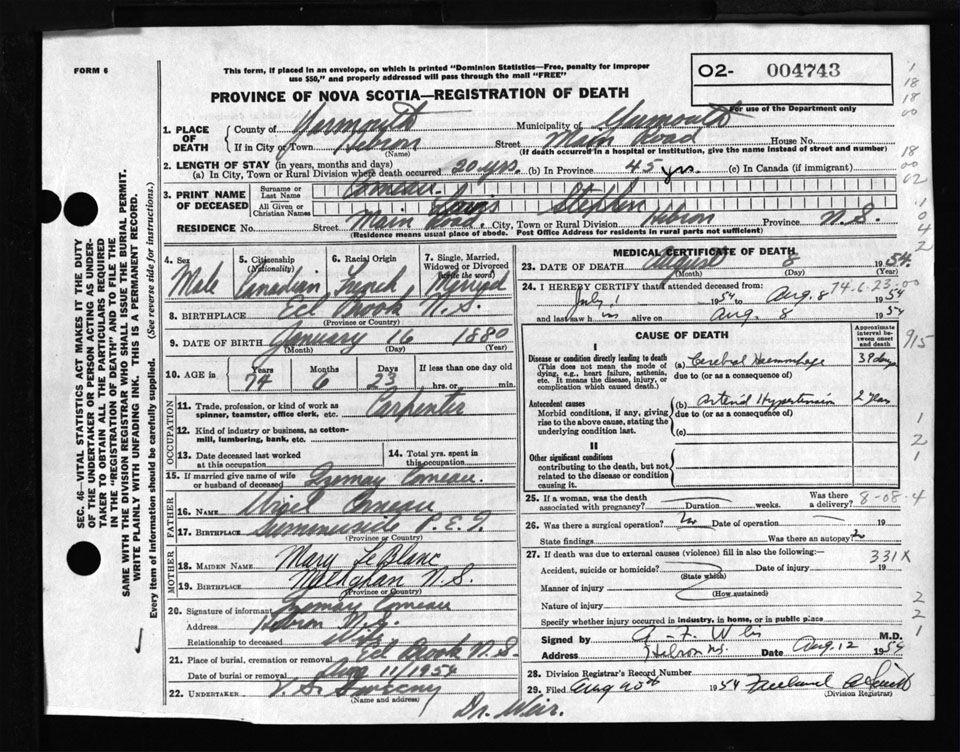 FORM 6
This form, if placed in an envelope, on which is printed "Dominion Statistics—Free, penalty for improper
use $50," and properly addressed will pass through the mail "FREE"
O2- 004743
PROVINCE OF NOVA SCOTIA—REGISTRATION OF DEATH
For use of the Department only
1. PLACE OF DEATH { County of Yarmouth Municipality of Yarmouth
If in City or Town Hebron (Name) Street Main Road House No.
(If death occurred in a hospital or institution, give the name instead of street and number)
2. LENGTH OF STAY (in years, months and days)
(a) In City, Town or Rural Division where death occurred 20 yrs. (b) In Province 45 yrs. (c) In Canada (if immigrant)
3. PRINT NAME OF DECEASED { Surname or Last Name Comeau
All Given or Christian Names Louis Stephen
RESIDENCE No. Street Main Road, City, Town or Rural Division Hebron Province N.S.
(Residence means usual place of abode. Post Office Address for residents in rural parts not sufficient)
4. Sex 5. Citizenship (Nationality) 6. Racial Origin 7. Single, Married, Widowed or Divorced (write the word)
Male Canadian French Married
8. BIRTHPLACE Eel Brook N.S.
(Province or Country)
9. DATE OF BIRTH January 16 1880
(Month) (Day) (Year)
10. AGE in { Years Months Days If less than one day old
74 6 23 hrs. or min.
OCCUPATION
11. Trade, profession, or kind of work as
spinner, teamster, office clerk, etc. Carpenter
12. Kind of industry or business, as cotton-
mill, lumbering, bank, etc.
13. Date deceased last worked
at this occupation
14. Total yrs. spent in
this occupation
15. If married give name of wife
or husband of deceased Comeau
FATHER
16. NAME Comeau
17. BIRTHPLACE Summerside P.E.I.
(Province or Country)
MOTHER
18. MAIDEN NAME Mary LeBlanc
19. BIRTHPLACE N.S.
(Province or Country)
20. Signature of informant Comeau
Address Hebron N.S.
Relationship to deceased Wife
21. Place of burial, cremation or removal Eel Brook N.S
Date of burial or removal Aug 11/1954
22. UNDERTAKER V. S. Sweeny
(Name and address)
Dr. Weir.
MEDICAL CERTIFICATE OF DEATH
23. DATE OF DEATH August 8 1954
(Month) (Day) (Year)
74.6.23.00
24. I HEREBY CERTIFY that I attended deceased from:
July 1 1954 to Aug. 8 1954
and last saw h im alive on Aug. 8 1954
CAUSE OF DEATH
Approximate interval between onset and death
I
Disease or condition directly leading to death
(This does not mean the mode of
dying, e.g., heart failure, asthenia,
etc. It means the disease, injury, or
complication which caused death.)
(a) Cerebral Haemorrhage
due to (or as a consequence of)
Antecedent causes
Morbid conditions, if any, giving
rise to the above cause, stating the
underlying condition last.
(b) Arterial Hypertension 2 years
due to (or as a consequence of)
(c)
II
Other significant conditions
contributing to the death, but not
related to the disease or condition
causing it.
25. If a woman, was the death
associated with pregnancy? Duration weeks. Was there
a delivery?
8-08-4
26. Was there a surgical operation? Date of operation 19
State findings Was there an autopsy?
27. If death was due to external causes (violence) fill in also the following:—
331X
Accident, suicide or homicide? (State which) Date of injury 19
Manner of injury
(How sustained)
Nature of injury
Specify whether injury occurred in industry, in home, or in public place
Signed by M.D.
Address Hebron N.S. Date Aug. 12 1954
28. Division Registrar's Record Number
29. Filed Aug 1954
(Division Registrar)
SEC. 46—VITAL STATISTICS ACT MAKES IT THE DUTY
OF THE UNDERTAKER OR PERSON ACTING AS UNDER-
TAKER TO OBTAIN ALL THE PARTICULARS REQUIRED
IN THE "REGISTRATION OF DEATH" AND TO FILE THE
SAME WITH THE DIVISION REGISTRAR WHO SHALL ISSUE THE BURIAL PERMIT.
WRITE PLAINLY WITH UNFADING INK. THIS IS A PERMANENT RECORD.
Every item of information should be carefully supplied. (See reverse side for instructions.)